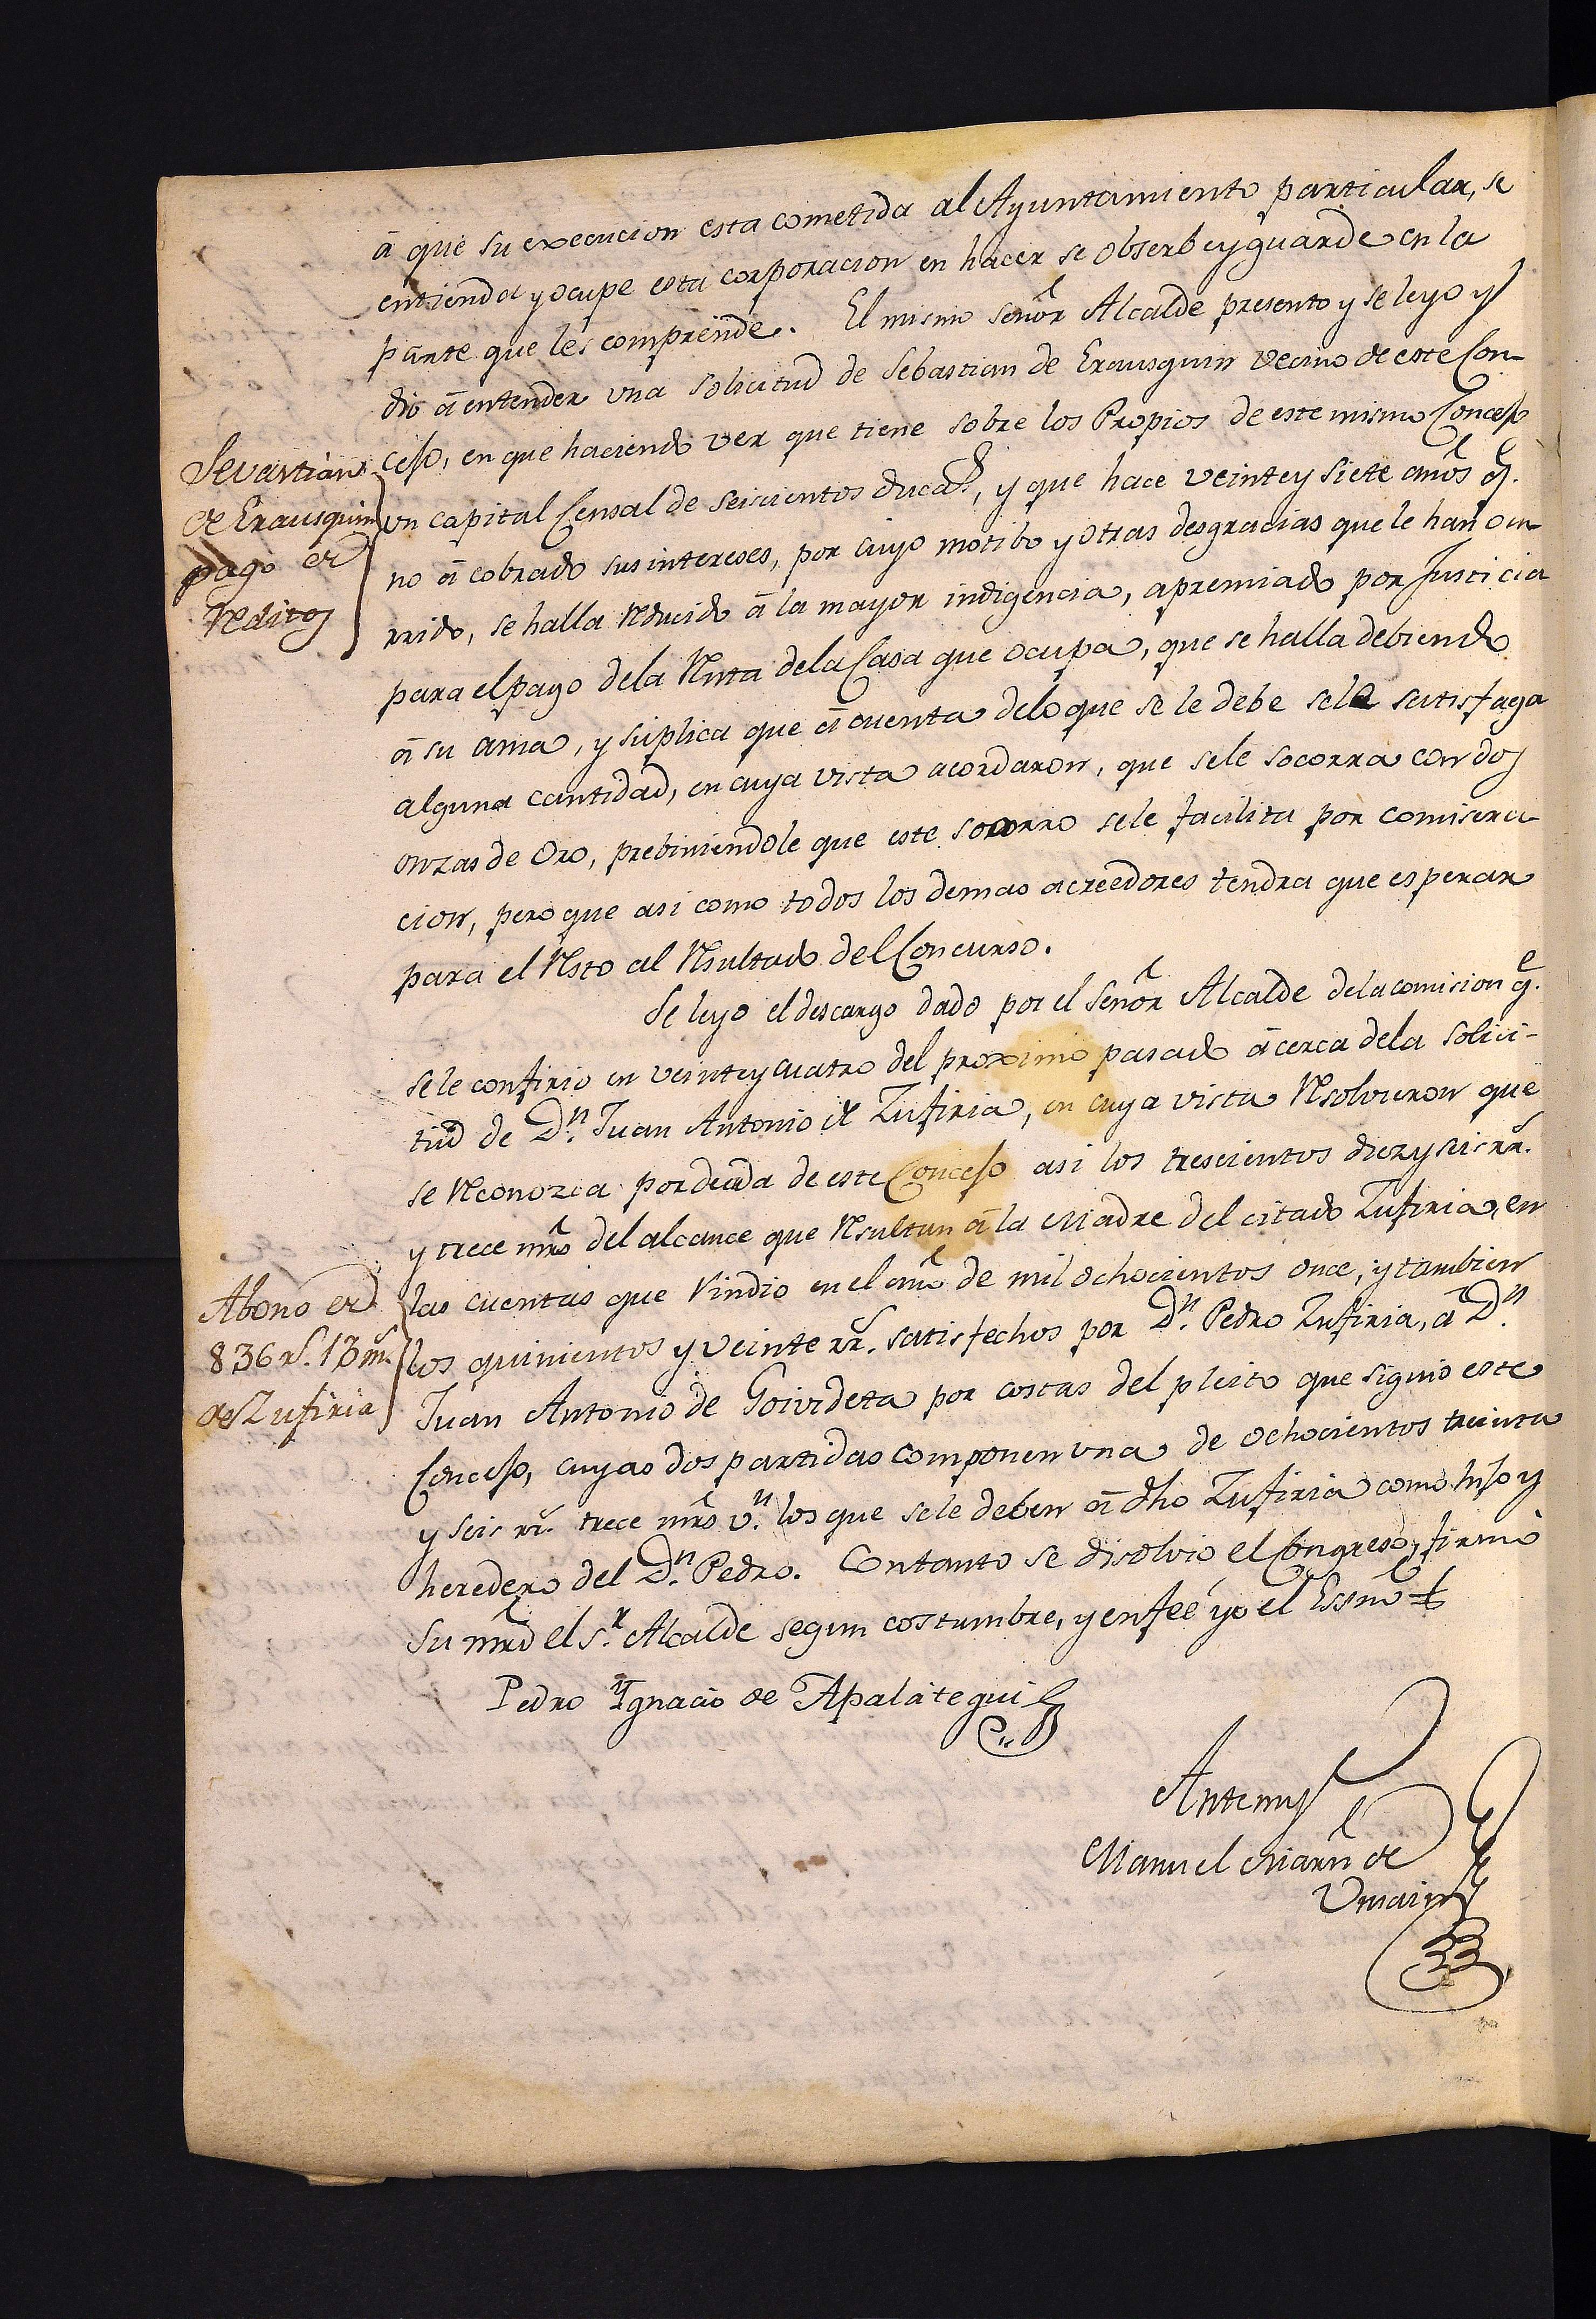 á que su execucion esta cometida al Ayuntamiento particular, se
entienda y ocupe esta corporacion en hacer se obserbe y guarde en la
parte que les comprende. El mismo señor Alcalde presento y se leyo y
dió á entender una solicitud de Sebastian de Erausquin vecino de este Con-
Sevastian
de Erausquin
pago de
reditos
cejo, en que haciendo ver que tiene sobre los Propios de este mismo Concejo
un capital Censal de seiscientos ducas, y que hace veinte y siete años q.e
no á cobrado sus intereses, por cuyo motibo y otras desgracias que le han ocu-
rrido, se halla reducido á la mayor indigencia, apremiado por Justicia
para el pago dela renta dela Casa que ocupa, que se halla debiendo
á su ama, y suplica que á cuenta delo que se le debe sele satisfaga
alguna cantidad, en cuya vista acordaron, que sele socorra con dos
onzas de Oro, prebiniendole que este socorro sele facilita por comisera-
cion, pero que asi como todos los demas acreedores tendra que esperar
para el resto al resultado del Concurso.
Se leyo el descargo dado por el señor Alcalde dela comision q.e
sele confirio en veinte y cuatro del proximo pasado ácerca dela solici-
tud de D.n Juan Antonio de Zufiria, en cuya vista resolvieron que
se reconozca por deuda de este Concejo asi los trescientos diez y seis rr.
y trece mrs del alcance que resultan á la Madre del citado Zufiria, en
Abono de
836 r.s 13 m.s
de Zufiria
las cuentas que rindio en el año de mil ochocientos once, y tambien
los quinientos y veinte rr. satisfechos por D.n Pedro Zufiria, á D.n
Juan Antonio de Goivideta por costas del pleito que siguio este
Concejo, cuyas dos partidas componen una de ochocientos treinta
y seis rr. trece mrs v.n los que sele deben á dho Zufiria como hijo y
heredero del D.n Pedro. Contanto se disolvió el Congreso, firmó
su mrd el s.r Alcalde segun costumbre, y enfeé yo el Essno
Pedro Ygnacio de Apalategui
Antemy
Manuel Marn de